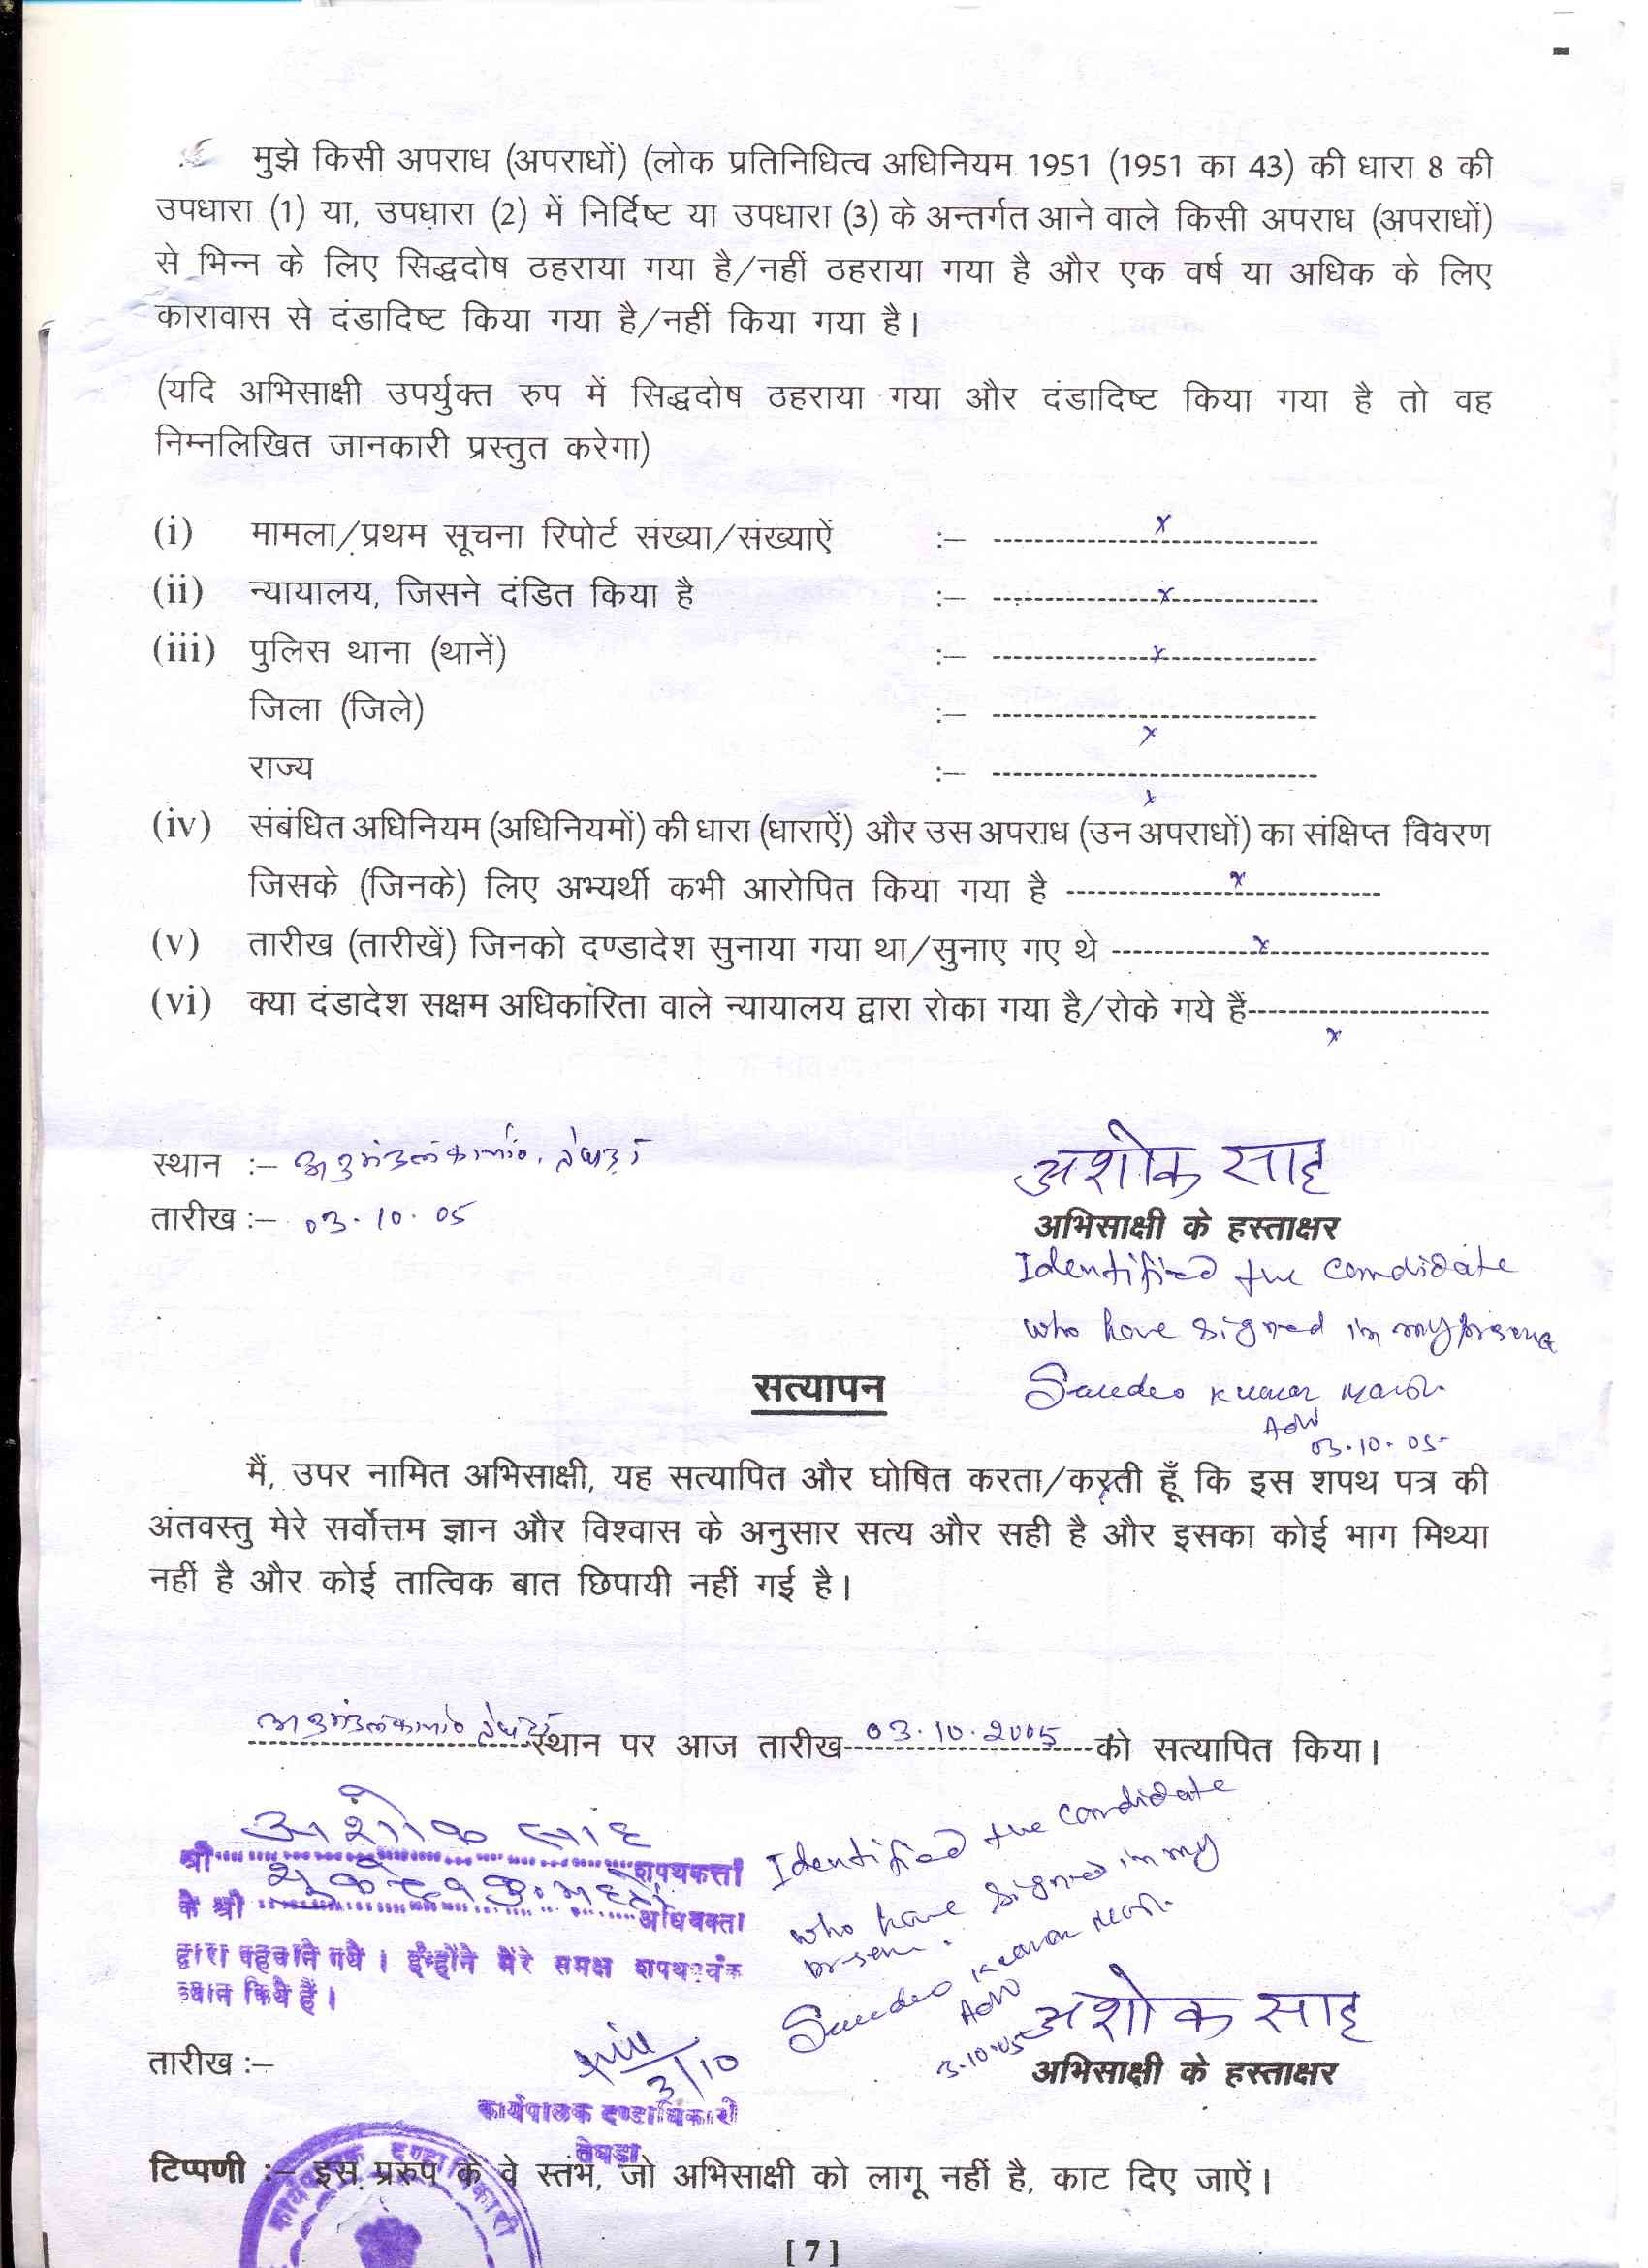 मुझे किसी अपराध (अपराधों) (लोक प्रतिनिधित्व अधिनियम 1951 (1951 का 43) की धारा 8 की
उपधारा (1) या, उपधारा (2) में निर्दिष्ट या उपधारा (3) के अन्तर्गत आने वाले किसी अपराध (अपराधों)
से भिन्न के लिए सिद्धदोष ठहराया गया है/नहीं ठहराया गया है और एक वर्ष या अधिक के लिए
कारावास से दंडादिष्ट किया गया है/नहीं किया गया है।
(यदि अभिसाक्षी उपर्युक्त रुप में सिद्धदोष ठहराया गया और दंडादिष्ट किया गया है तो वह
निम्नलिखित जानकारी प्रस्तुत करेगा)
(i) मामला/प्रथम सूचना रिपोर्ट संख्या/संख्याऐं :– x
(ii) न्यायालय, जिसने दंडित किया है :– x
(iii) पुलिस थाना (थानें) :– x
जिला (जिले) :– x
राज्य :– x
(iv) संबंधित अधिनियम (अधिनियमों) की धारा (धाराऐं) और उस अपराध (उन अपराधों) का संक्षिप्त विवरण
जिसके (जिनके) लिए अभ्यर्थी कभी आरोपित किया गया है x
(v) तारीख (तारीखें) जिनको दण्डादेश सुनाया गया था/सुनाए गए थे x
(vi) क्या दंडादेश सक्षम अधिकारिता वाले न्यायालय द्वारा रोका गया है/रोके गये हैं x
स्थान :–
अशोक साह
तारीख :– 03.10.05
अभिसाक्षी के हस्ताक्षर
Identified the candidate
who have signed in my
03.10.05
सत्यापन
मैं, उपर नामित अभिसाक्षी, यह सत्यापित और घोषित करता/करती हूँ कि इस शपथ पत्र की
अंतवस्तु मेरे सर्वोत्तम ज्ञान और विश्वास के अनुसार सत्य और सही है और इसका कोई भाग मिथ्या
नहीं है और कोई तात्विक बात छिपायी नहीं गई है।
स्थान पर आज तारीख 03.10.2005 को सत्यापित किया।
श्री अशोक साह शपथकर्त्ता
के श्री अधिवक्ता
द्वारा पहचाने गये। इन्होंने मेरे समक्ष शपथ
किये हैं।
Identified the candidate
who have signed in my
3.10.05
अशोक साह
अभिसाक्षी के हस्ताक्षर
तारीख :–
3/10
कार्यपालक दण्डाधिकारी
तेघड़ा
टिप्पणी :– इस प्ररुप के वे स्तंभ, जो अभिसाक्षी को लागू नहीं है, काट दिए जाऐं।
कार्यपालक दण्डाधिकारी
[ 7 ]